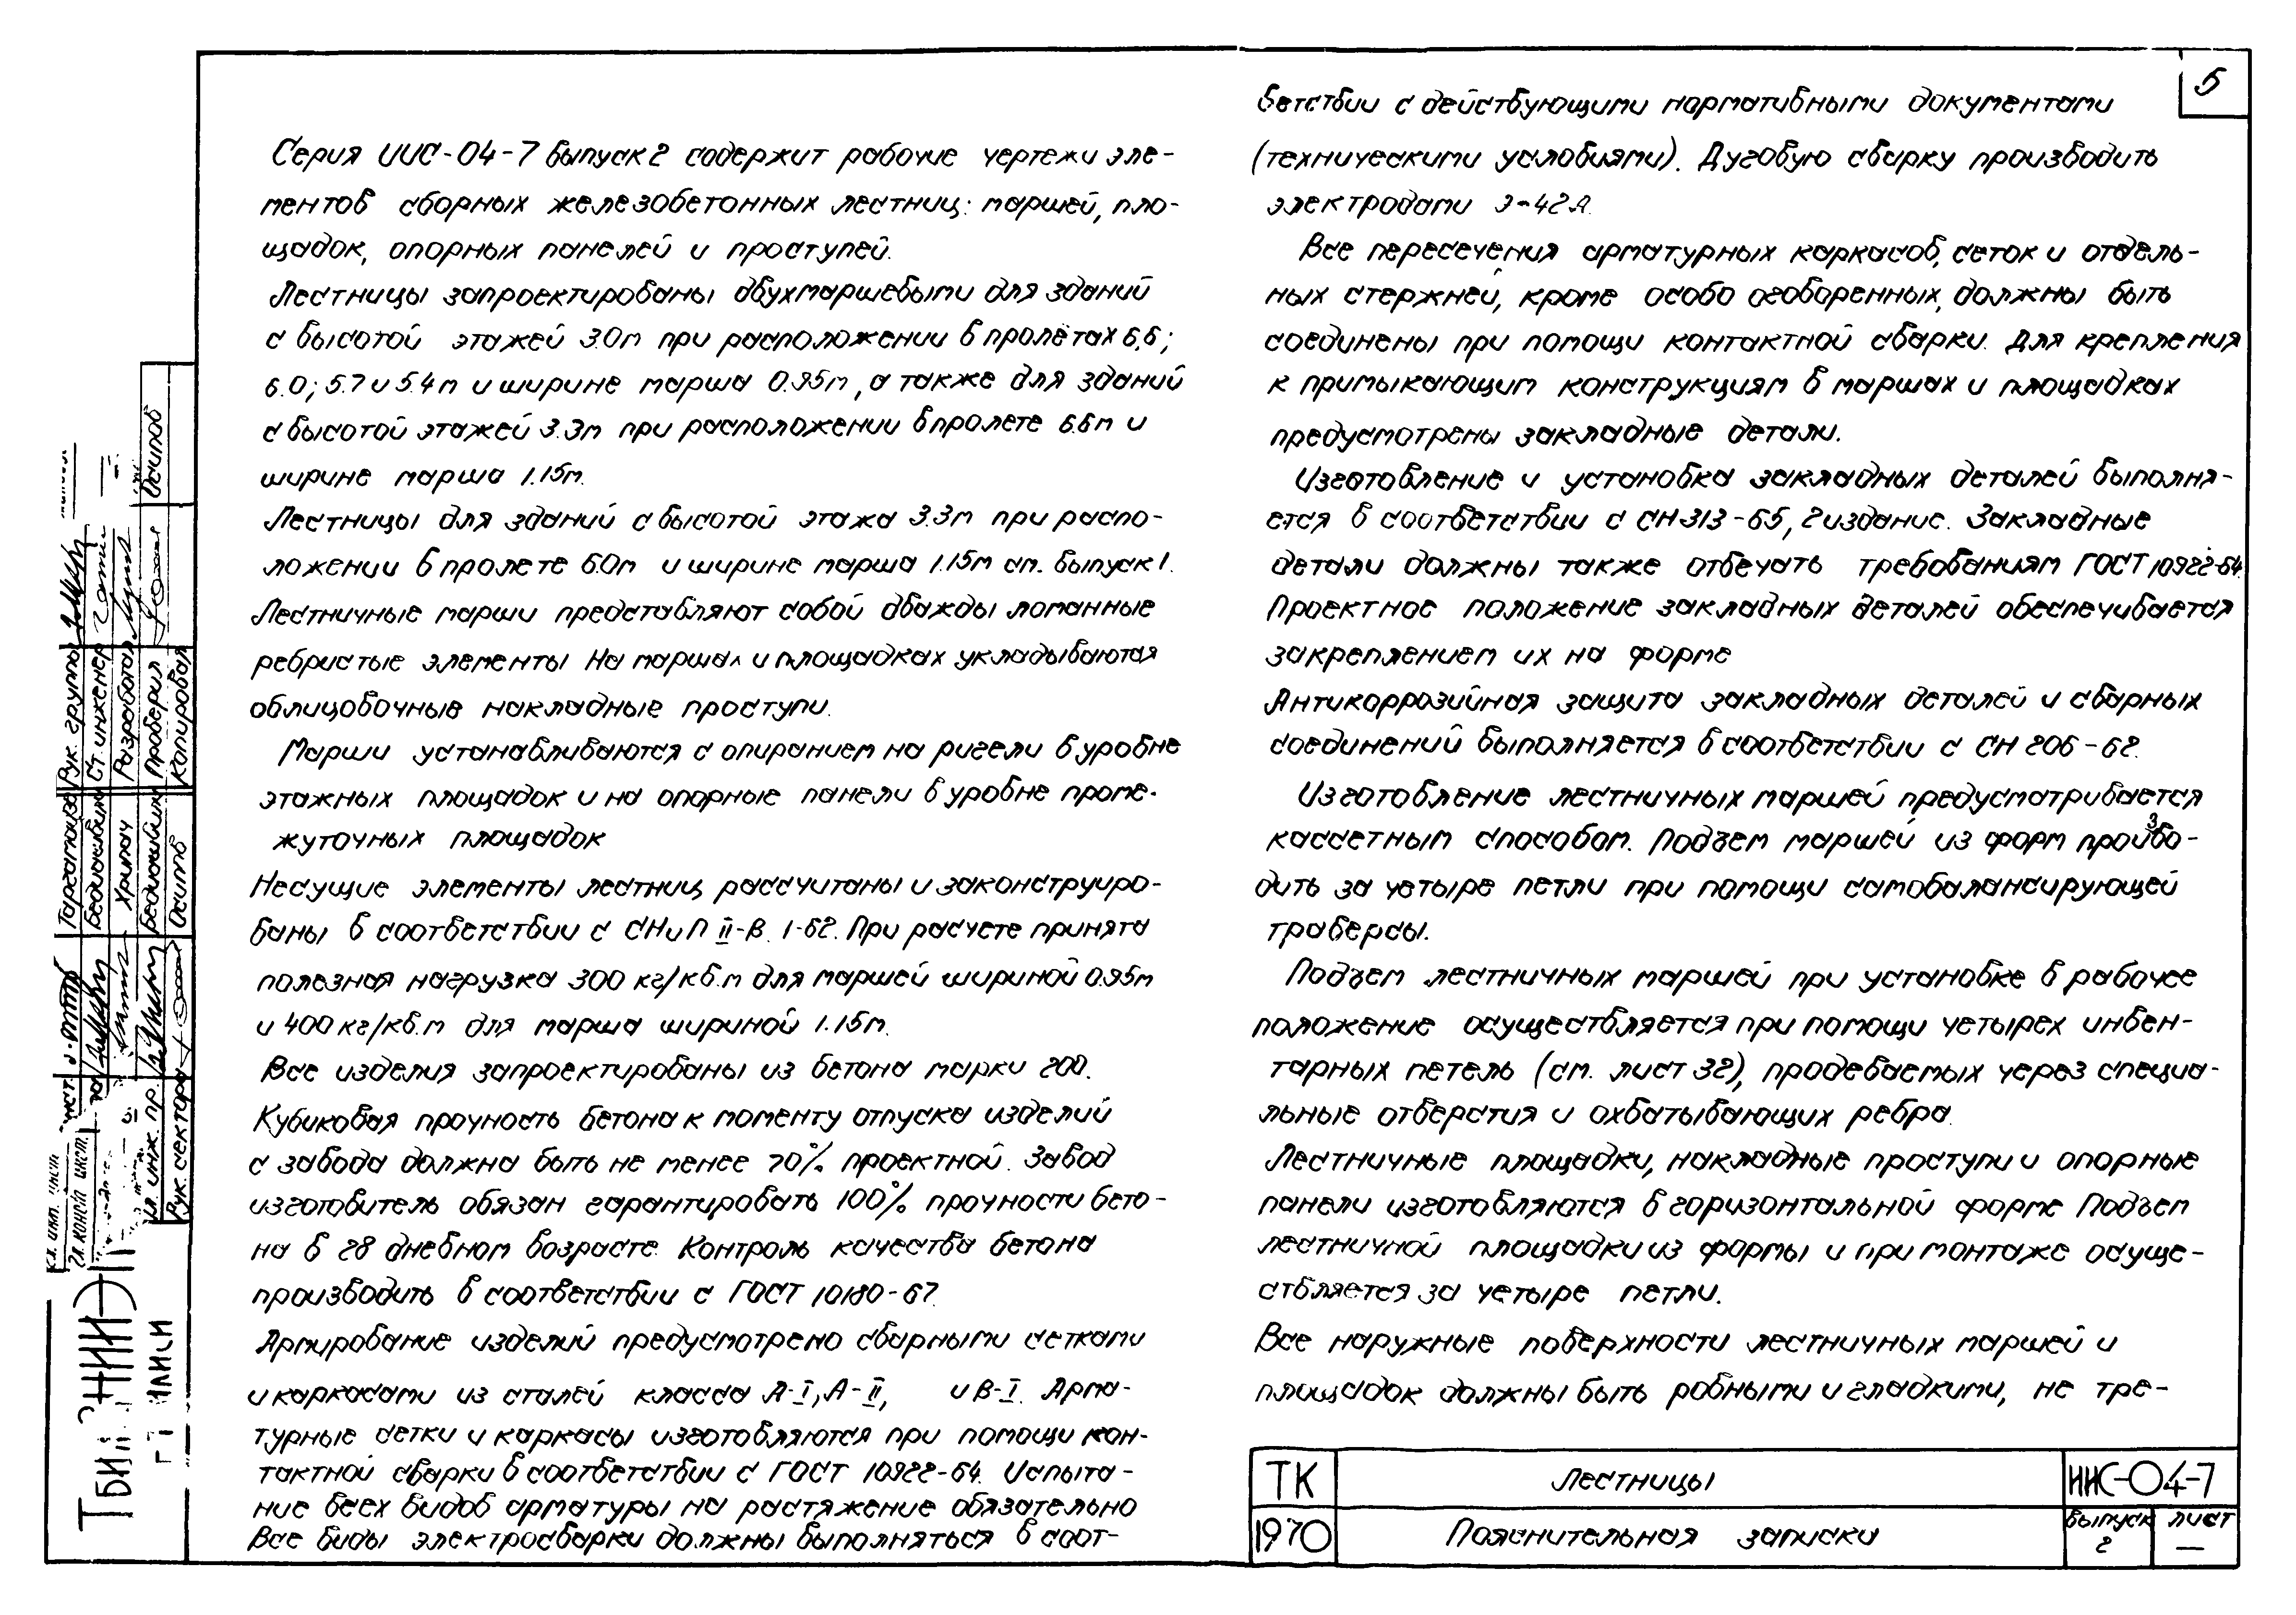 5
Серия ИИС-04-7 выпуск 2 содержит рабочие чертежи эле-
ментов сборных железобетонных лестниц: маршей, пло-
щадок, опорных панелей и проступей.
Лестницы запроектированы двухмаршевыми для зданий
с высотой этажей 3.0м при расположении в пролётах 6,6;
6.0; 5.7 и 5.4м и ширине марша 0.95м, а также для зданий
с высотой этажей 3.3м при расположении в пролете 6.6м и
ширине марша 1.15м.
Лестницы для зданий с высотой этажа 3.3м при распо-
ложении в пролете 6.0м и ширине марша 1.15м см. выпуск 1.
Лестничные марши представляют собой дважды ломанные
ребристые элементы На маршах и площадках укладываются
облицовочные накладные проступи.
Марши устанавливаются с опиранием на ригели в уровне
этажных площадок и на опорные панели в уровне проме-
жуточных площадок
Несущие элементы лестниц рассчитаны и законструиро-
ваны в соответствии с СНиП II-В. 1-62. При расчете принята
полезная нагрузка 300 кг/кв.м для маршей шириной 0.95м
и 400 кг/кв.м для марша шириной 1.15м.
Все изделия запроектированы из бетона марки 200.
Кубиковая прочность бетона к моменту отпуска изделий
с завода должна быть не менее 70% проектной. Завод
изготовитель обязан гарантировать 100% прочности бето-
на в 28 дневном возрасте. Контроль качества бетона
производить в соответствии с ГОСТ 10180-67.
Армирование изделий предусмотрено сварными сетками
и каркасами из сталей класса А-I, А-II, и В-I. Арма-
турные сетки и каркасы изготовляются при помощи кон-
тактной сварки в соответствии с ГОСТ 10922-64. Испыта-
ние всех видов арматуры на растяжение обязательно
Все виды электросварки должны выполняться в соот-
ветствии с действующими нормативными документами
(техническими условиями). Дуговую сварку производить
электродами Э-42А.
Все пересечения арматурных каркасов, сеток и отдель-
ных стержней, кроме особо оговоренных, должны быть
соединены при помощи контактной сварки. Для крепления
к примыкающим конструкциям в маршах и площадках
предусмотрены закладные детали.
Изготовление и установка закладных деталей выполня-
ется в соответствии с СН 313-65, 2 издание. Закладные
детали должны также отвечать требованиям ГОСТ 10922-64.
Проектное положение закладных деталей обеспечивается
закреплением их на форме
Антикоррозийная защита закладных деталей и сварных
соединений выполняется в соответствии с СН 206-62.
Изготовление лестничных маршей предусматривается
кассетным способом. Подъем маршей из форм произво-
дить за четыре петли при помощи самобалансирующей
траверсы.
Подъем лестничных маршей при установке в рабочее
положение осуществляется при помощи четырех инвен-
тарных петель (см. лист 32), продеваемых через специа-
льные отверстия и охватывающих ребра.
Лестничные площадки, накладные проступи и опорные
панели изготовляются в горизонтальной форме Подъем
лестничной площадки из формы и при монтаже осуще-
ствляется за четыре петли.
Все наружные поверхности лестничных маршей и
площадок должны быть ровными и гладкими, не тре-
ТК
Лестницы
ИИС-04-7
1970
Пояснительная записка
выпуск
2
лист
—
Рук. группы
Ст. инженер
Разработал
Проверил
Копировал
Хрипач
Осипов
Осипов
Гл. инж. пр.
Рук. сектора